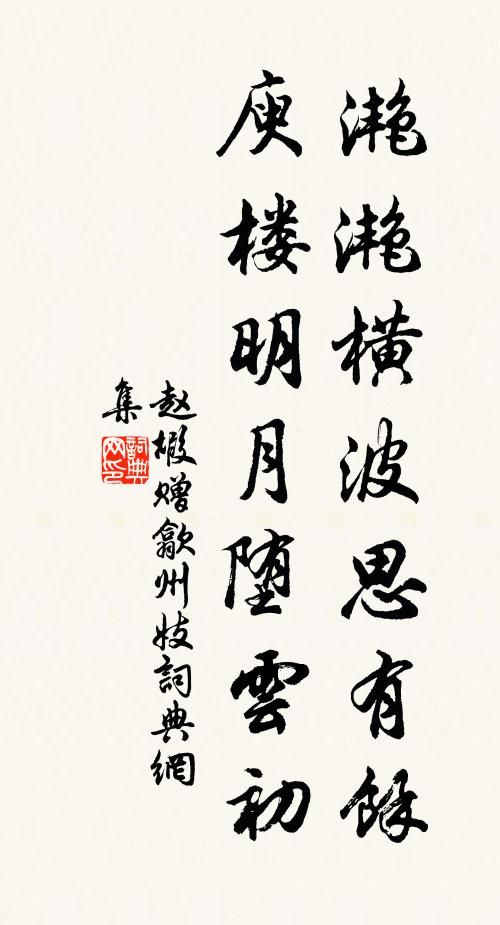 滟滟横波思有餘
庾楼明月堕雲初
赵嘏赠歙州妓詞典網
集
詞典网印